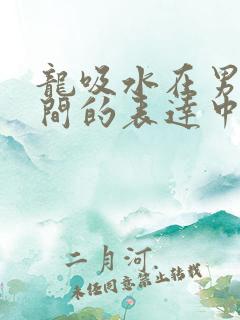 龍吸水在男
間的表達中
二月河
未經同意禁止轉載